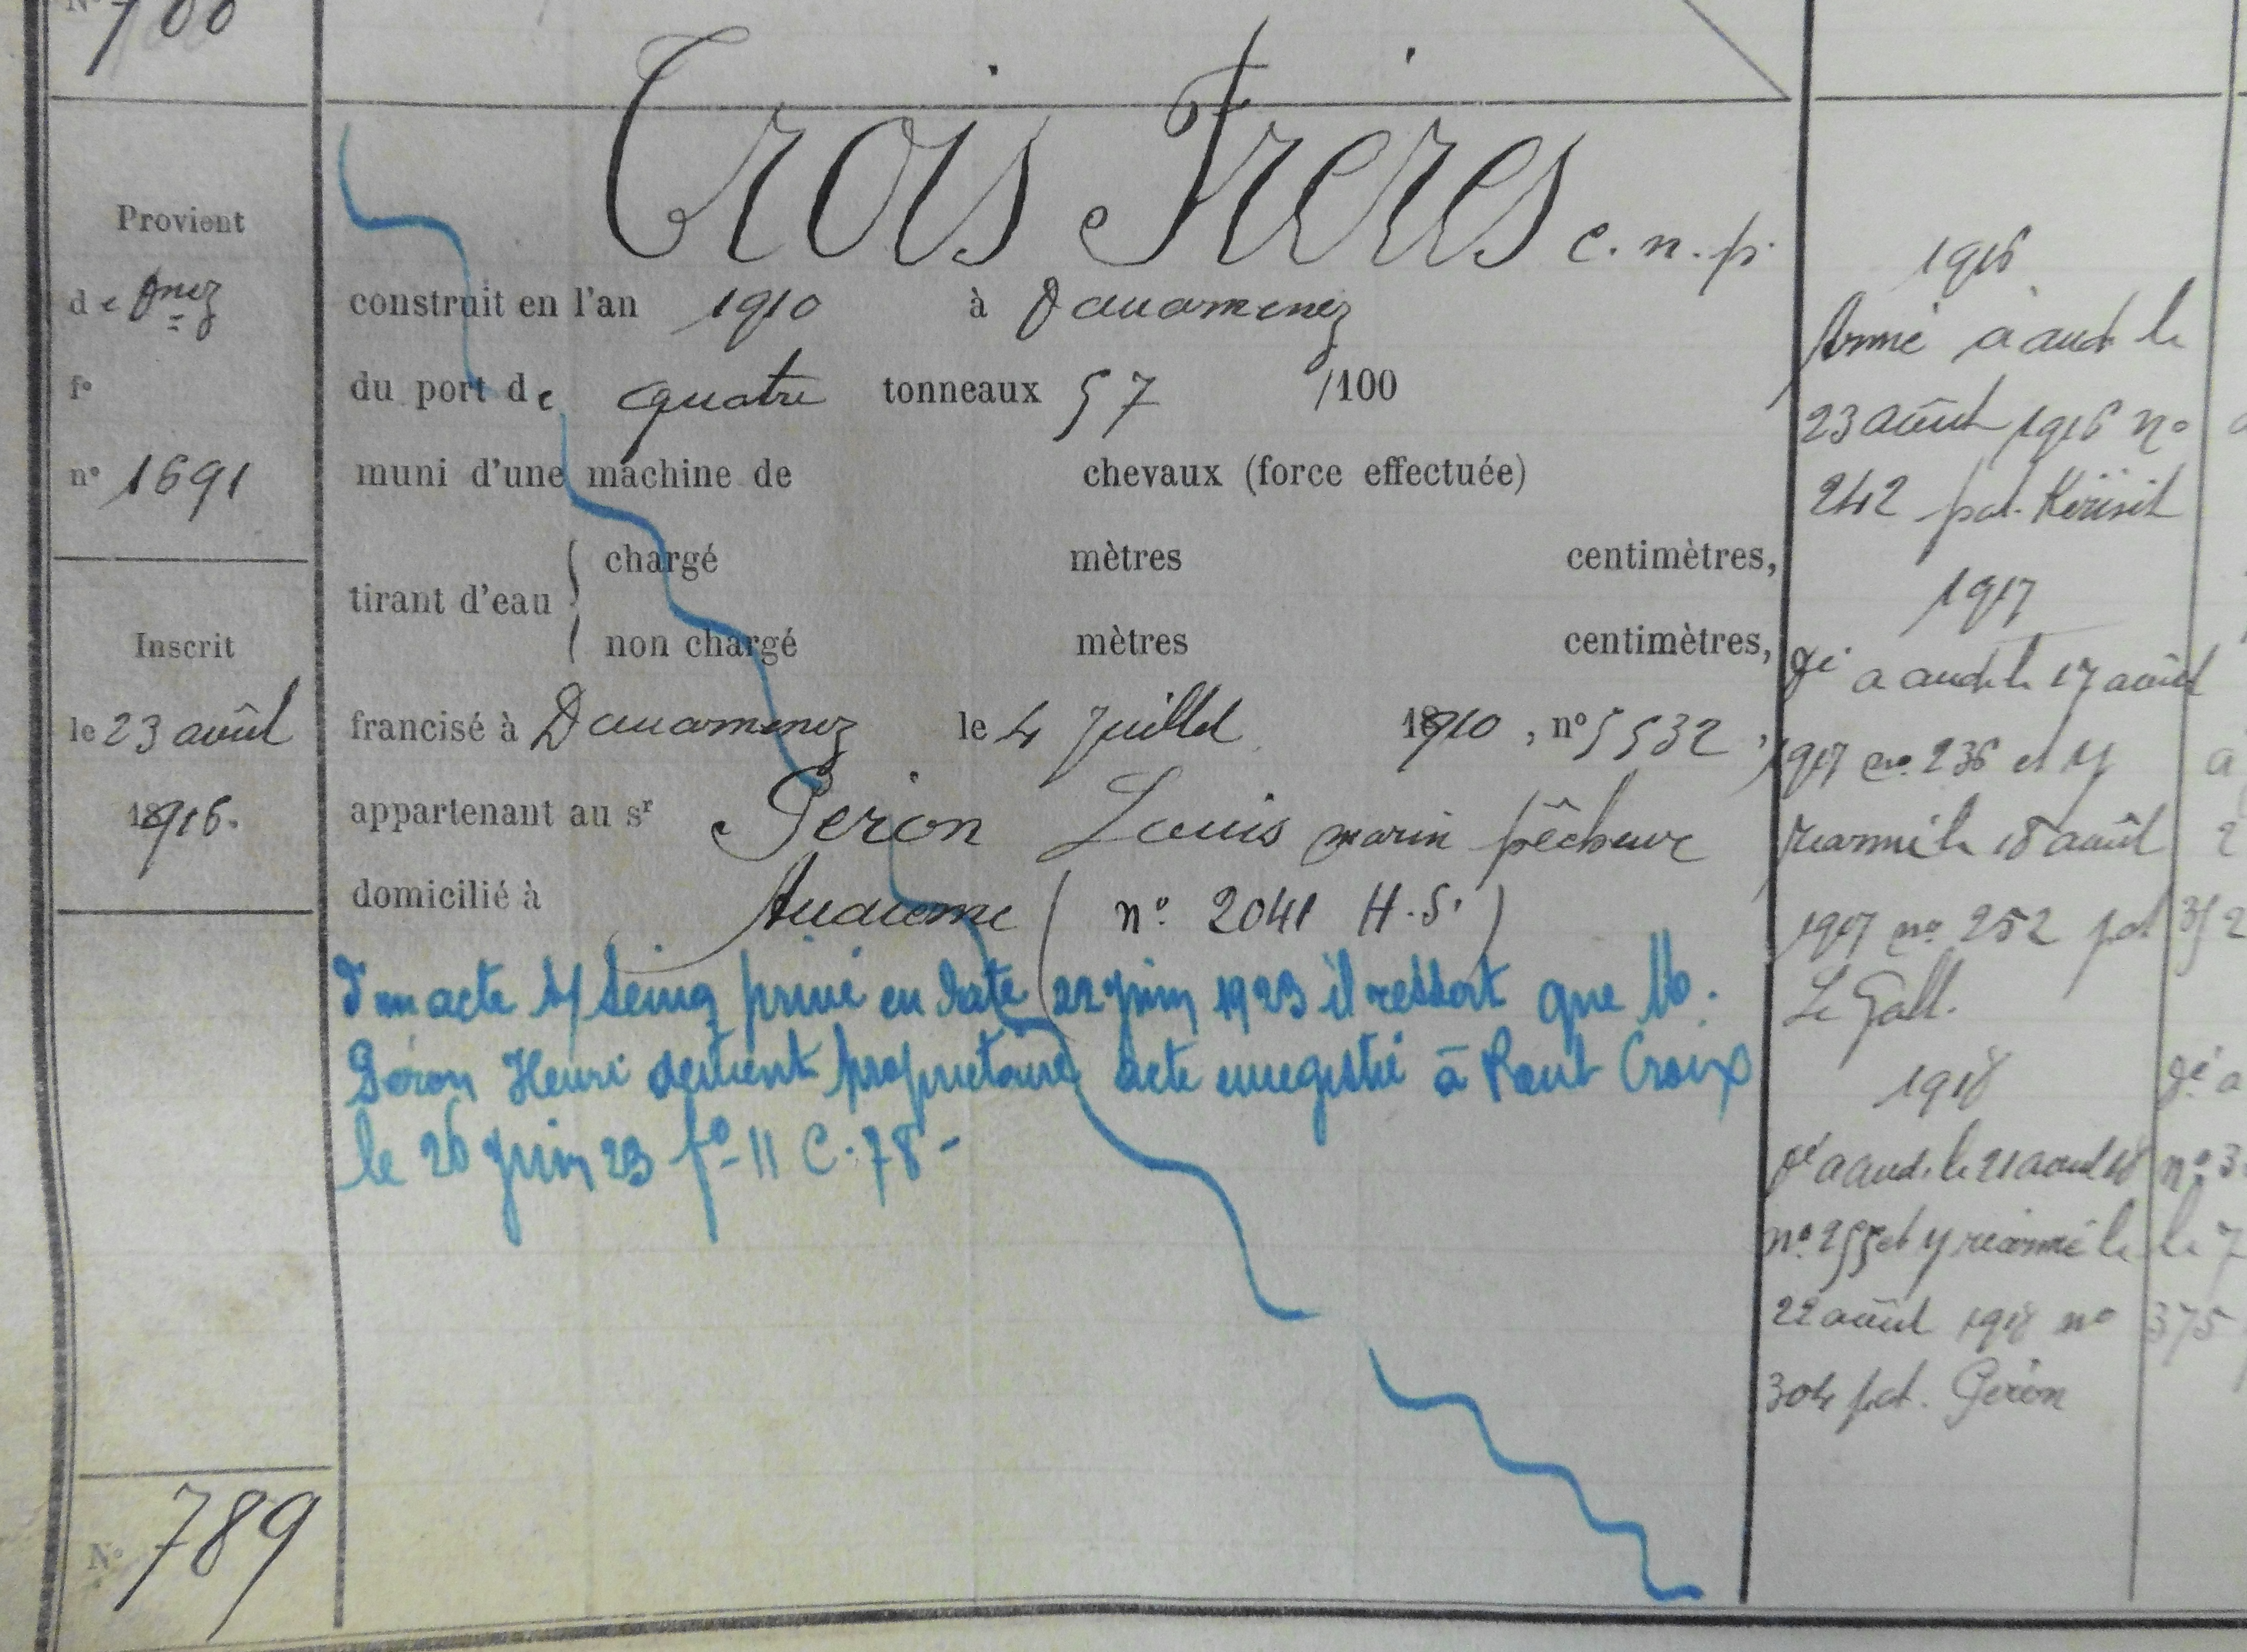 N° 788
Trois Frères c. n. p.
Provient
de Dnez
f°
n° 1691
Inscrit
le 23 août
1916.
N° 789
construit en l'an 1910 à Douarnenez
du port de quatre tonneaux 57 /100
muni d'une machine de chevaux (force effectuée)
tirant d'eau { chargé mètres centimètres,
non chargé mètres centimètres,
francisé à Douarnenez le 4 Juillet 1910, n° 5532,
appartenant au sr Péron Louis marin pêcheur
domicilié à Audierne (n° 2041 H.S.)
D'un acte s/ seing privé en date 22 juin 1923 il ressort que M.
Péron Henri devient propriétaire acte enregistré à Pont Croix
le 26 juin 23 f° 11 C. 78 -
1916
Armé à aud. le
23 août 1916 n°
242 pat. Kérisit
1917
Dé à aud. le 17 août
1917 n° 236 et y
réarmé le 18 août
1917 n° 252 pat
Le Gall.
1918
Dé à aud. le 21 août 18
n° 255 et y réarmé le
22 août 1918 n°
304 pat. Péron
Dé à
n° 3
le 7
375